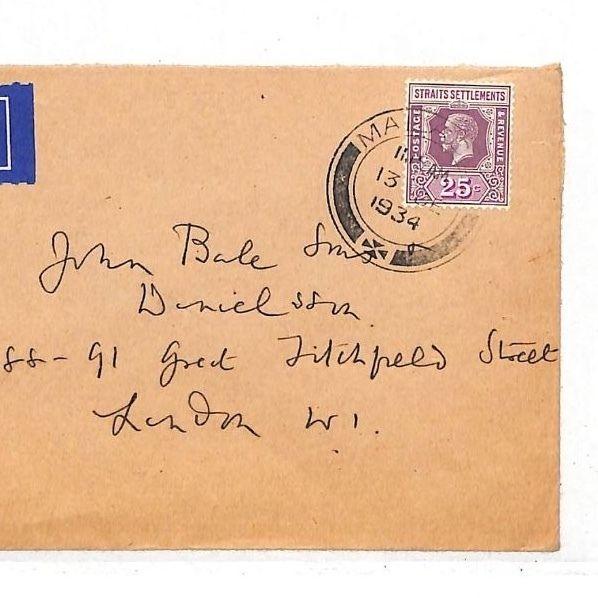 STRAITS SETTLEMENTS
POSTAGE & REVENUE
25 c.
MA
11 AM
13
1934
John Bale Sons
Danielsson
88-91 Great Titchfield Street
London W1.